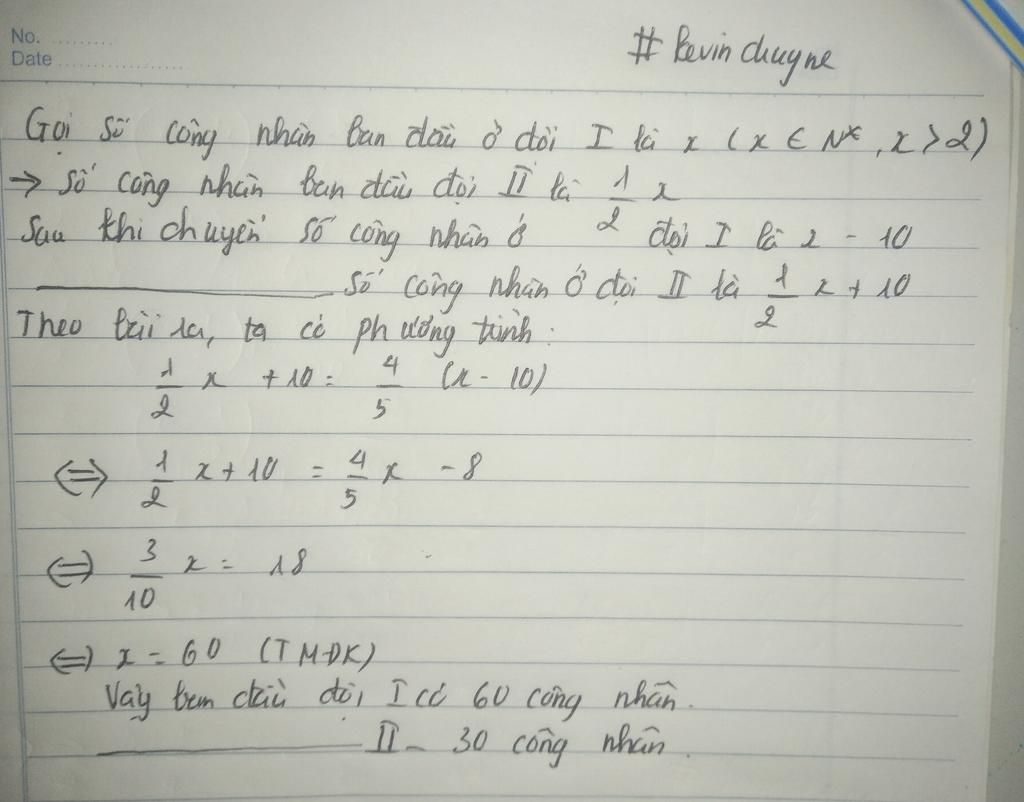 No. ..........
Date ....................
# Kevin chuyne
Gọi số công nhân ban đầu ở đội I là x (x ∈ N*, x > 2)
→ số công nhân ban đầu đội II là 1/2 x
Sau khi chuyển số công nhân ở đội I là x - 10
____________ số công nhân ở đội II là 1/2 x + 10
Theo bài ra, ta có phương trình:
1/2 x + 10 = 4/5 (x - 10)
⇔ 1/2 x + 10 = 4/5 x - 8
⇔ 3/10 x = 18
⇔ x = 60 (TMĐK)
Vậy ban đầu đội I có 60 công nhân.
____________ II _ 30 công nhân.